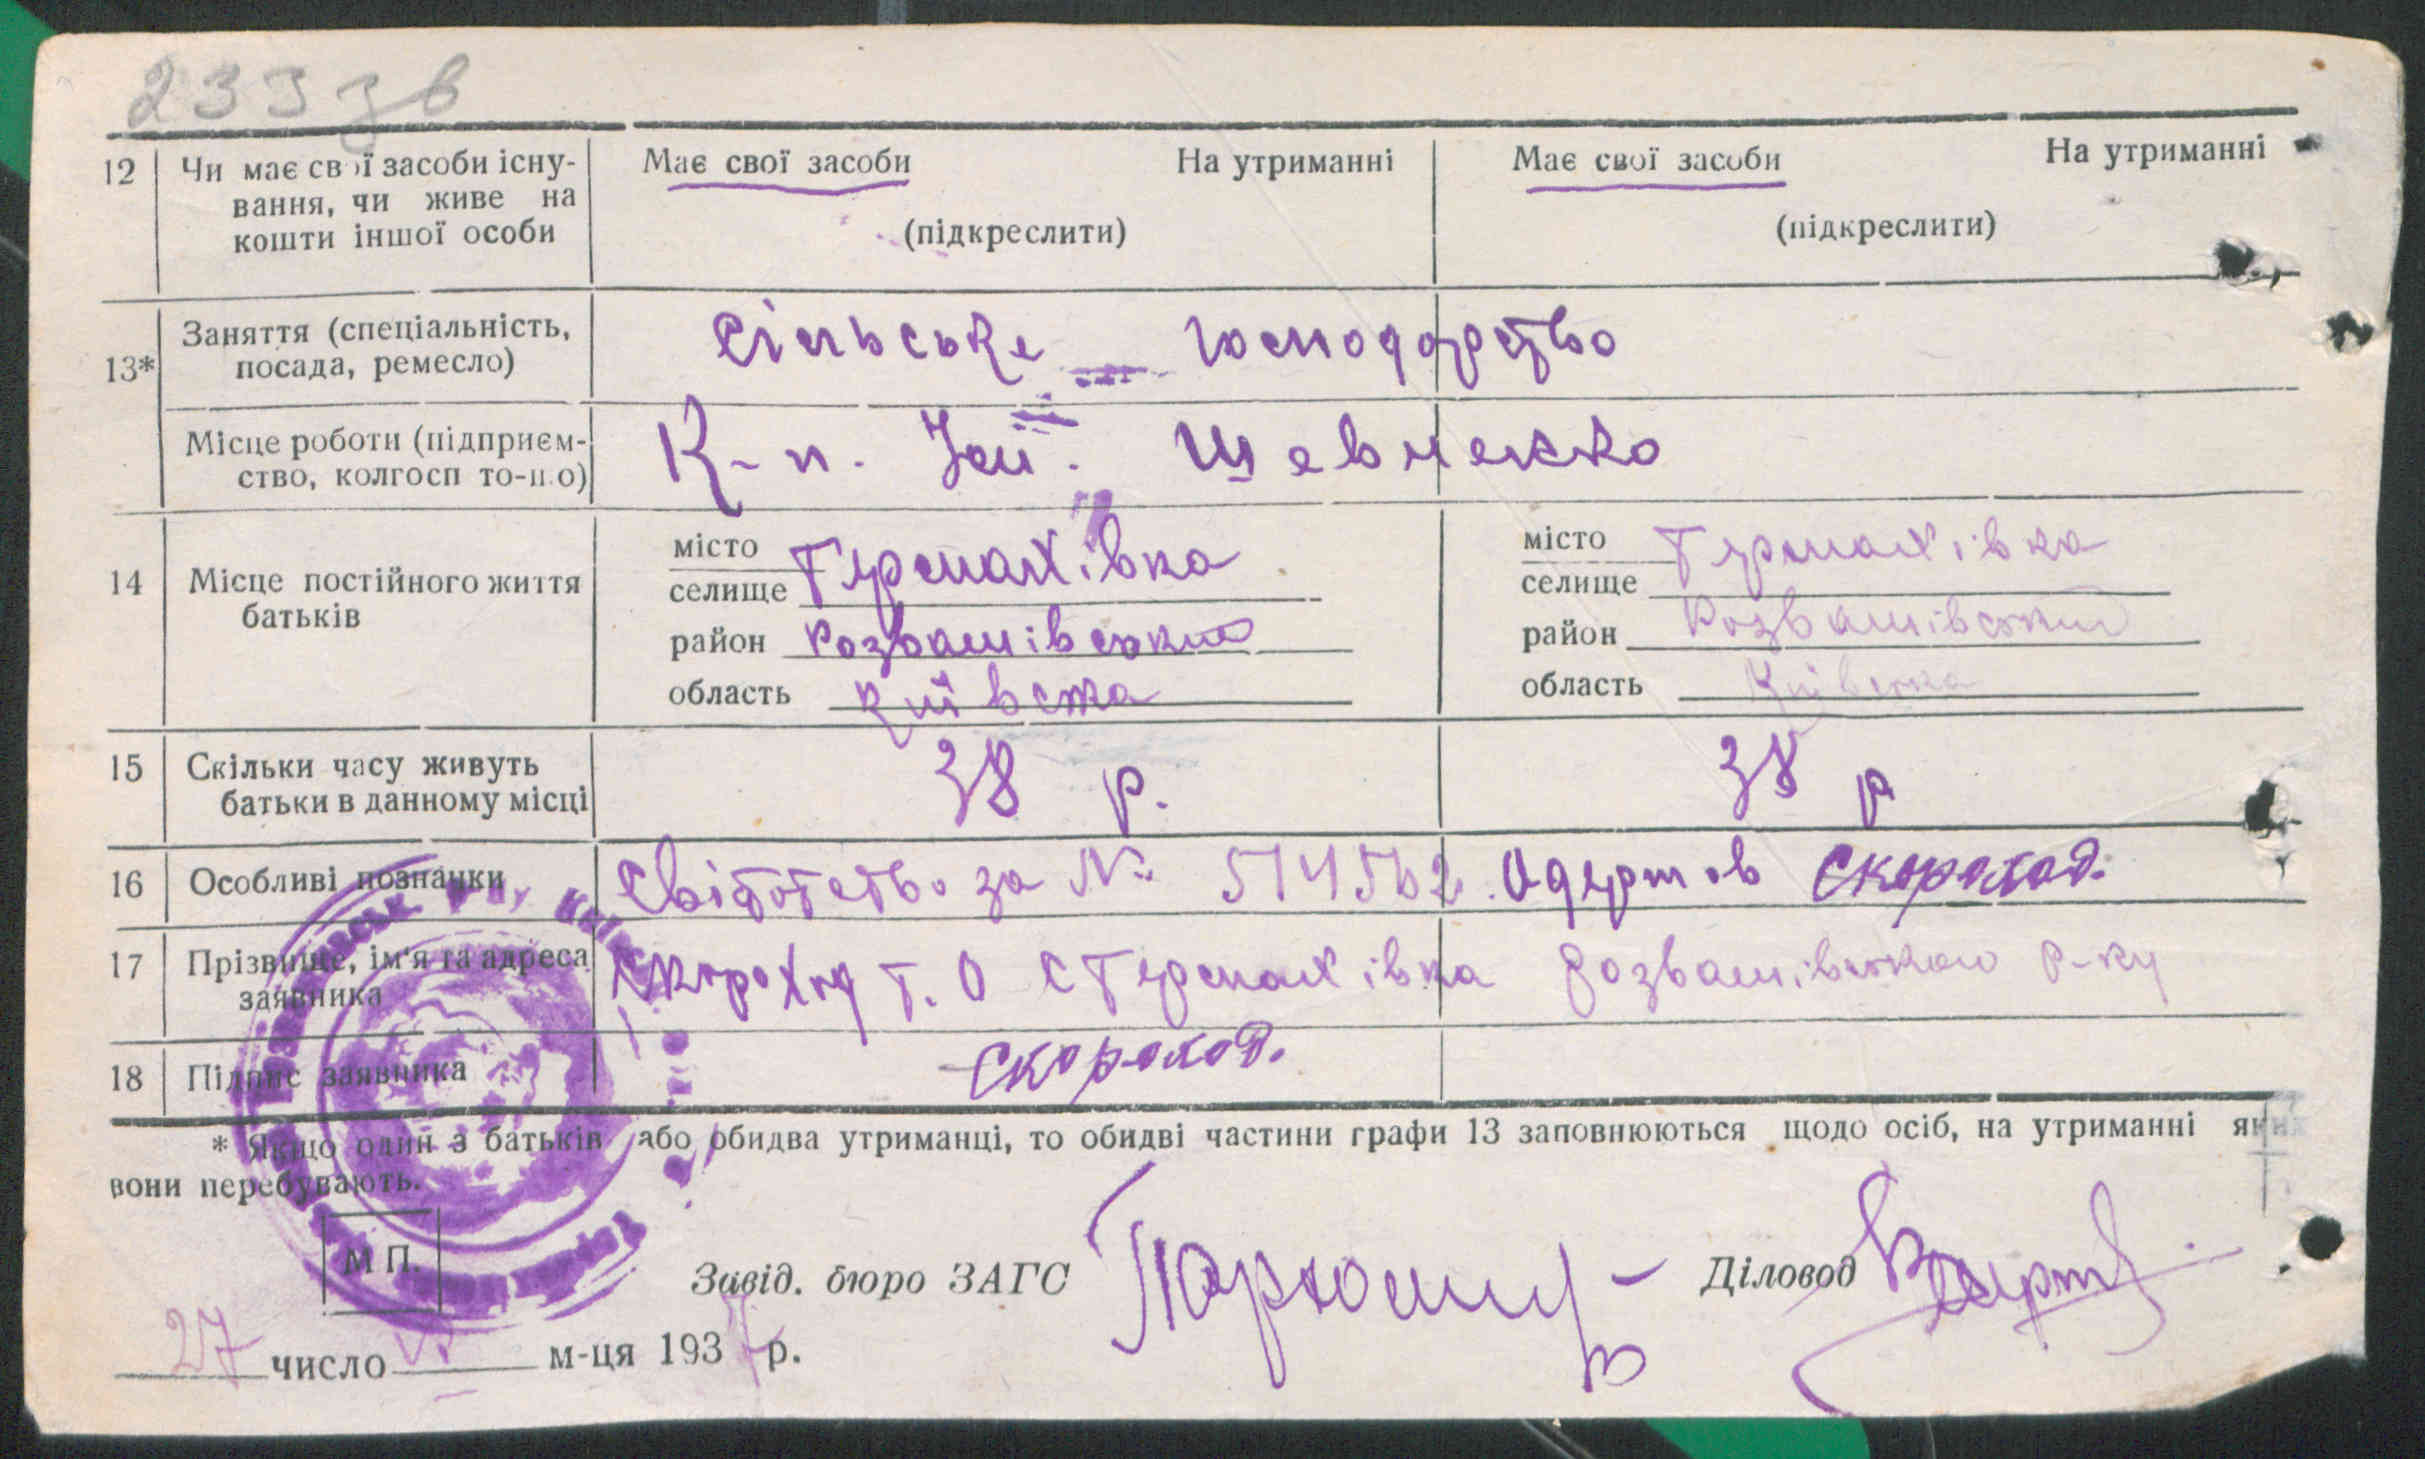 233 зв
12 Чи має свої засоби існу- Має свої засоби На утриманні Має свої засоби На утриманні
вання, чи живе на
кошти іншої особи (підкреслити) (підкреслити)
Заняття (спеціальність, сільське господарство
13* посада, ремесло)
Місце роботи (підприєм- К-п. Ім. Шевченко
ство, колгосп то-що)
місто Термахівка місто Термахівка
14 Місце постійного життя селище селище
батьків район Розважівський район Розважівський
область Київська область Київська
15 Скільки часу живуть 38 р. 38 р
батьки в данному місці
16 Особливі познанки Свідотство за № 514562. Одержав Скороход.
17 Прізвище, ім'я та адреса Скороход Т. О с Термахівка Розважівського р-ну
заявника
18 Підпис заявника Скороход.
* Якщо один з батьків або обидва утриманці, то обидві частини графи 13 заповнюються щодо осіб, на утриманні яких
вони перебувають.
М П.
Завід. бюро ЗАГС Діловод
27 число м-ця 1937 р.